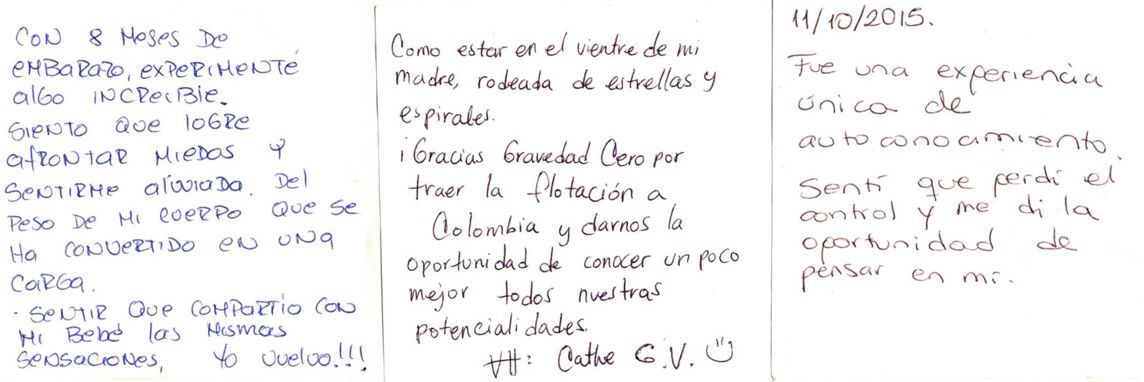 CON 8 MESES DE
EMBARAZO, EXPERIMENTÉ
algo INCREIBLE.
SIENTO QUE LOGRE
AFRONTAR MIEDOS Y
SENTIRME alíviada. Del
PESO DE MI CUERPO QUE SE
HA CONVERTIDO EN UNA
CARGA.
· SENTIR QUE COMPARTÍO CON
MI Bebé las MISMAS
SENSACIONES, Yo vuelvo!!!
Como estar en el vientre de mi
madre, rodeada de estrellas y
espirales.
¡Gracias Gravedad Cero por
traer la flotación a
Colombia y darnos la
oportunidad de conocer un poco
mejor todos nuestras
potencialidades.
Cathe G.V.
11/10/2015.
Fue una experiencia
única de
autoconocamiento.
Sentí que perdí el
control y me di la
oportunidad de
pensar en mi.